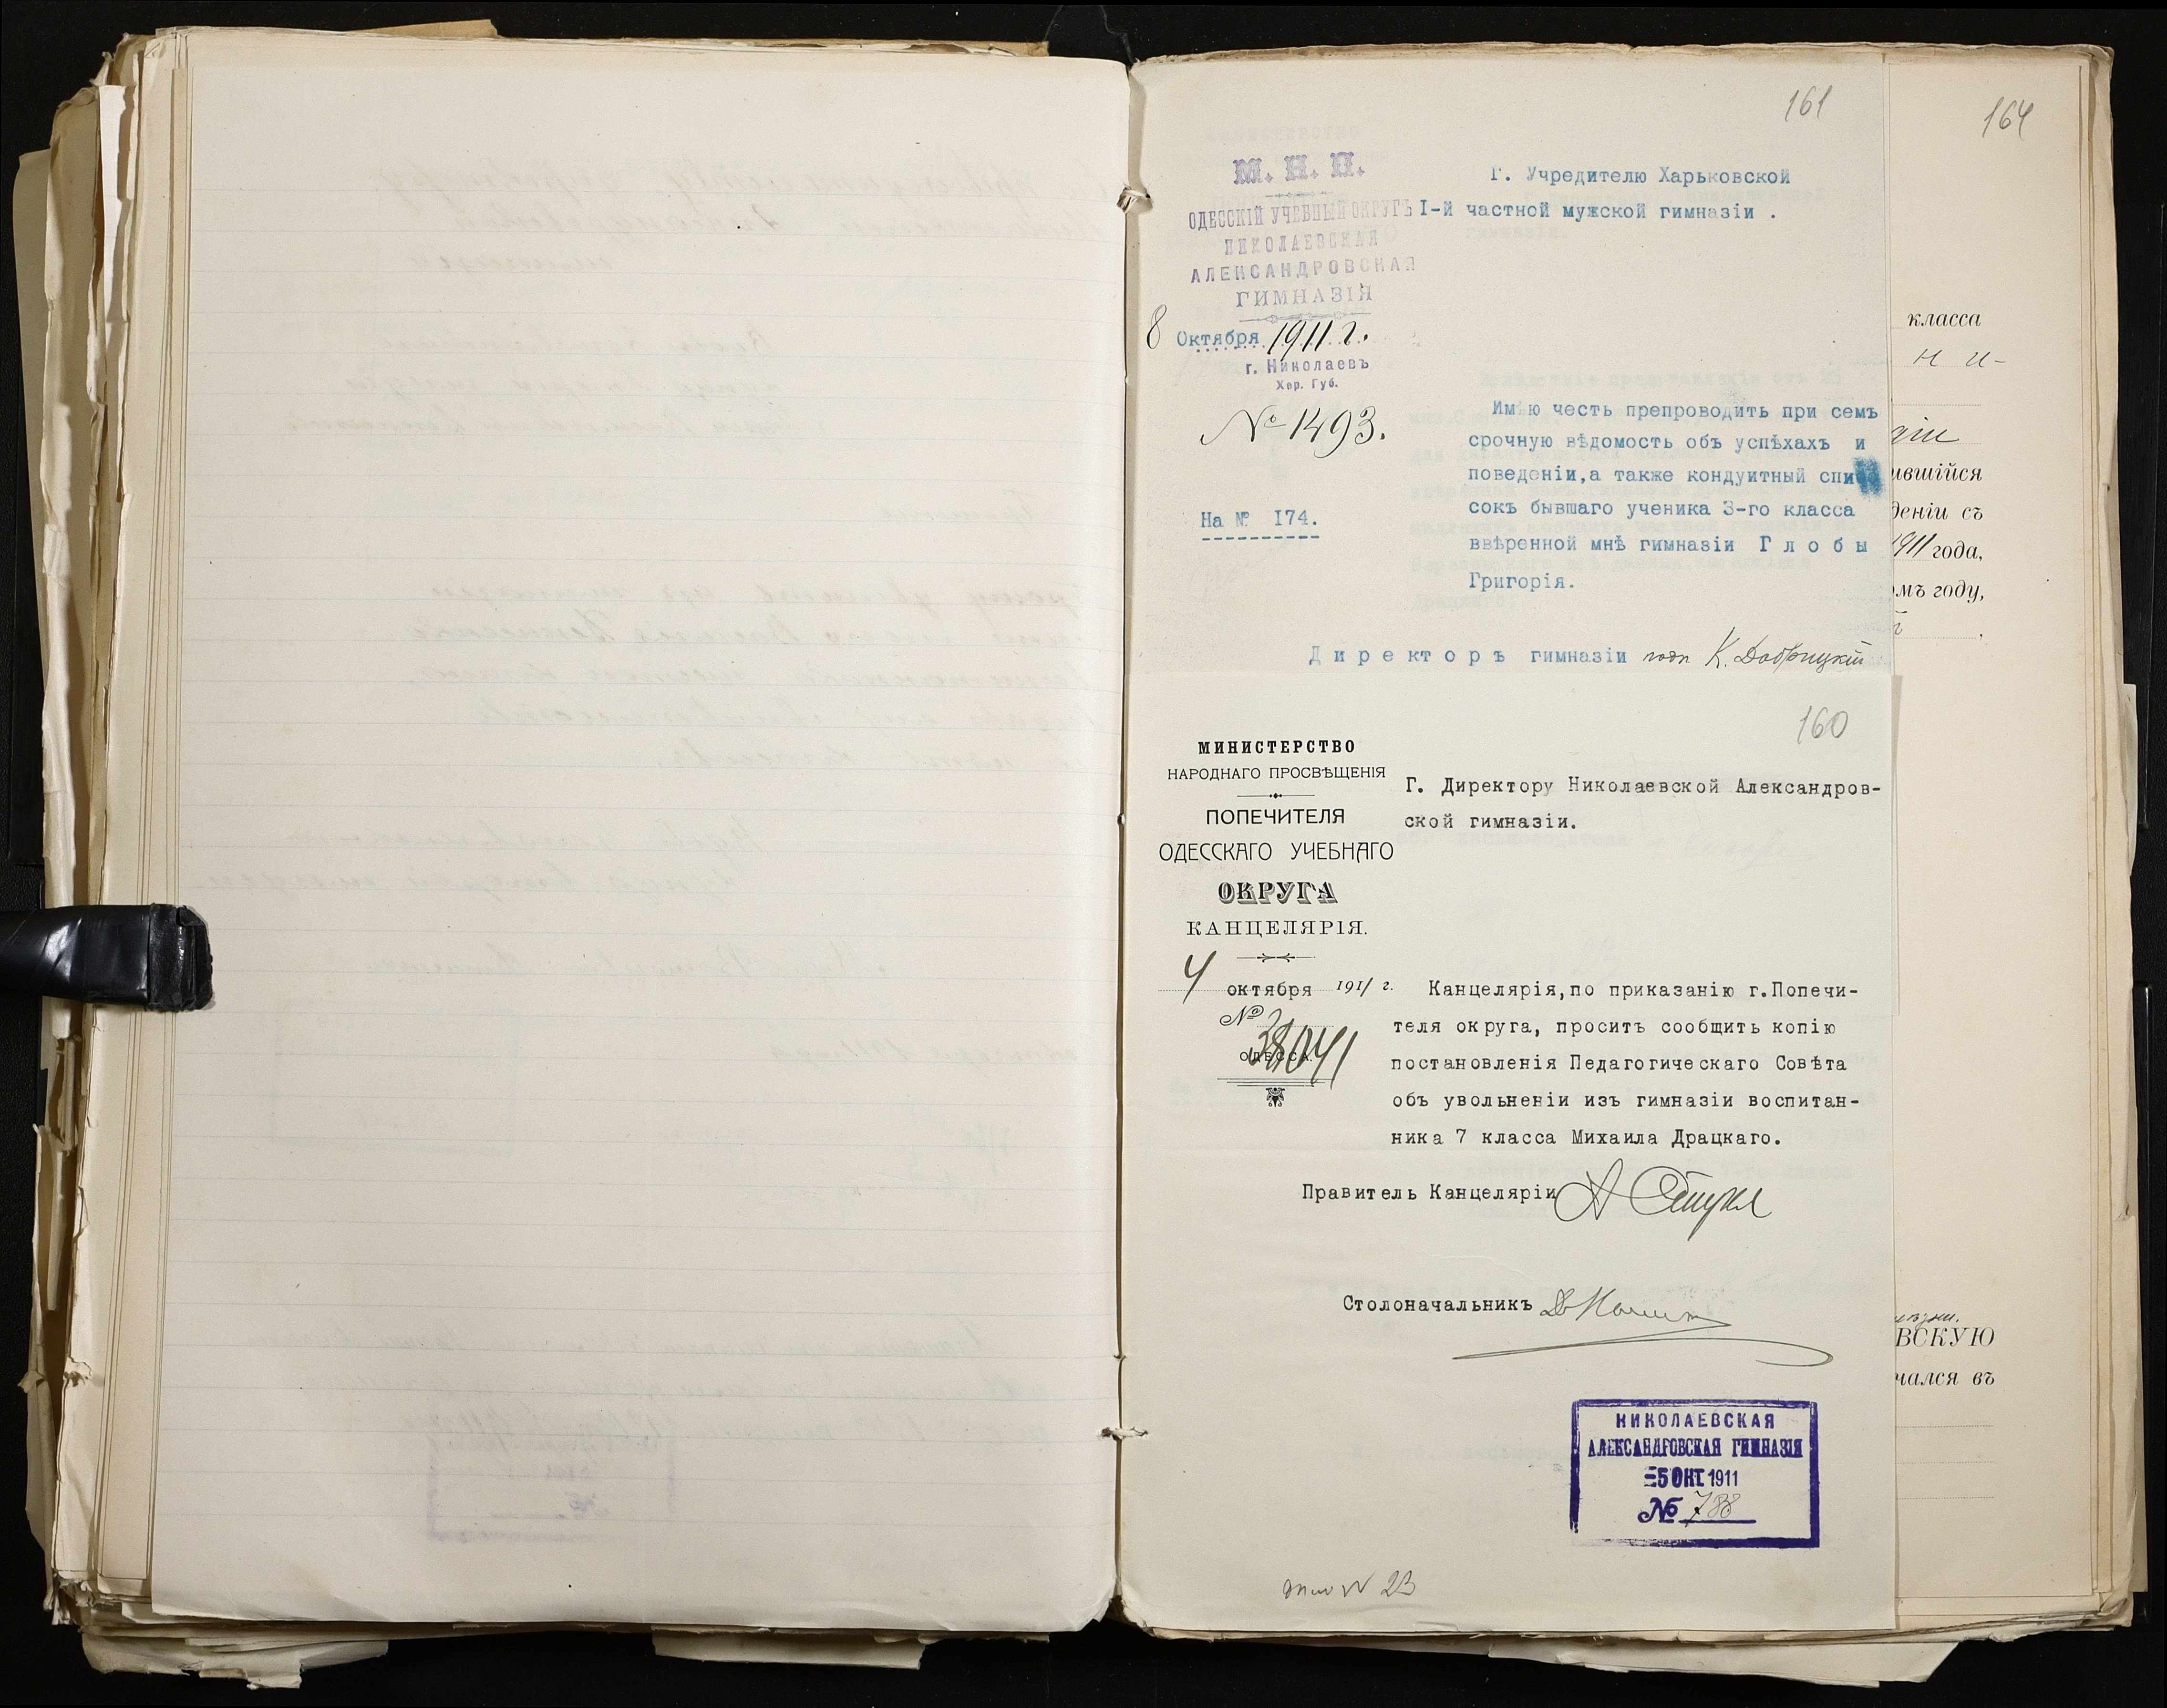 161
М. Н. П.
ОДЕССКІЙ УЧЕБНЫЙ ОКРУГЪ
НИКОЛАЕВСКАЯ
АЛЕКСАНДРОВСКАЯ
ГИМНАЗІЯ
8 Октября 1911 г.
г. Николаевъ
Хер. Губ.
№ 1493.
На № I74.
Г. Учредителю Харьковской
I-й частной мужской гимназіи .
Им ю честь препроводить при семъ
срочную вѣдомость объ успѣхахъ и
поведеніи,а также кондуитный спи
сокъ бывшаго ученика 3-го класса
ввѣренной мнѣ гимназіи Г л о б ы
Григорія.
Д и р е кт о р ъ гимназіи подп К. Добрицкій
160
МИНИСТЕРСТВО
НАРОДНАГО ПРОСВѢЩЕНІЯ
ПОПЕЧИТЕЛЯ
ОДЕССКАГО УЧЕБНАГО
ОКРУГА
КАНЦЕЛЯРІЯ.
4 октября 1911 г.
№
ОДЕССА.
Г. Директору Николаевской Александров-
ской гимназіи.
Канцелярія,по приказанію г.Попечи-
теля округа, проситъ сообщить копію
постановленія Педагогическаго Совѣта
объ увольненіи изъ гимназіи воспитан-
ника 7 класса Михаила Драцкаго.
Правитель Канцеляріи
Столоначальникъ
НИКОЛАЕВСКАЯ
АЛЕКСАНДРОВСКАЯ ГИМНАЗІЯ
-5 ОКТ. 1911
№ 788
23
164
класса
н и-
ившійся
деніи съ
1911 года,
омъ году,
ВСКУЮ
чался въ